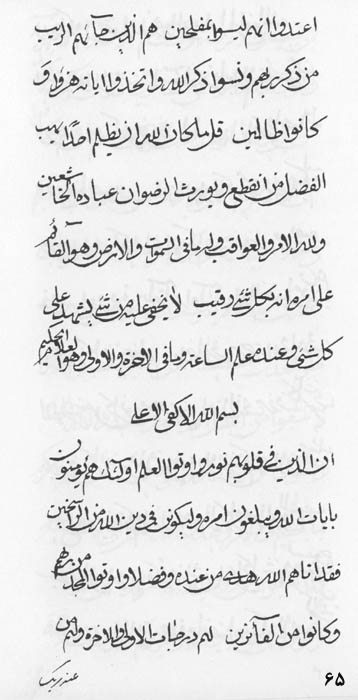 اعتدوا انهم ليسوا بمفلحين هم الذين جائهم الريب
من ذكر ربهم ونسوا ذكر الله واتخذوا اياته هزوا و
كانوا ظالمين قل ما كان الله ان يظلم احدا يهب
الفضل من انقطع ويورث الرضوان عباده الخاشعين
ولله الامر والعواقب وله ما في السموات والارض وهو القائم
على امره انه بكل شئ رقيب لا يخفى عليه من شئ يشهد على
كل شئ وعنده علم الساعة وما في الاخرة والاولى وهو العلام الحكيم
بسم الله الاكفى الاعلى
ان الذين في قلوبهم نور واوتوا العلم اولئك هم يؤمنون
بايات الله ويبلغون امره وليكونن في دين الله من الراسخين
فقد اتاهم الله هدى من عنده وفضلا واوتوا المجد من ربهم
وكانوا من الفائزين لهم درجات الاولى والاخرة ولهم من
عنده ربك
٦٥